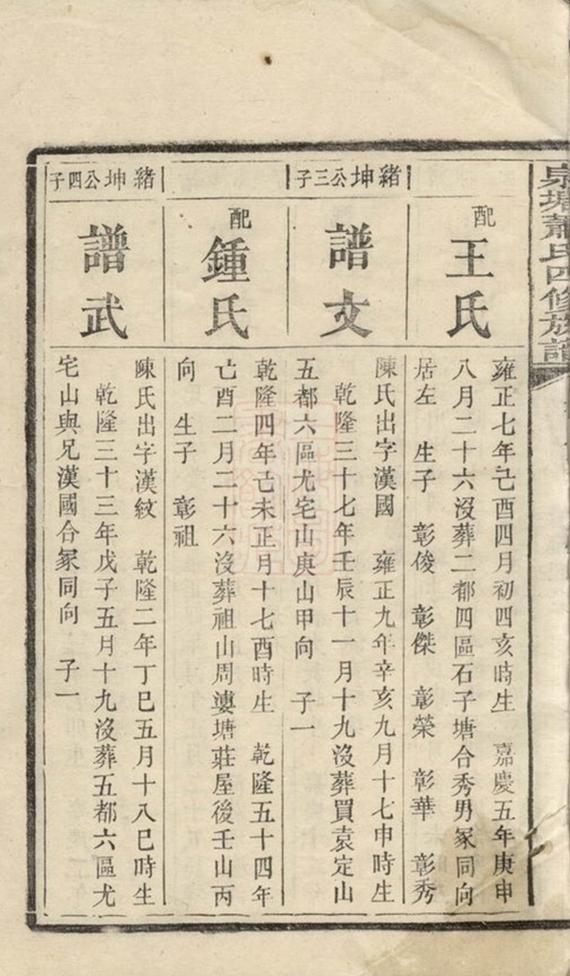 泉塘蕭氏四修族譜
配
王氏
雍正七年己酉四月初四亥時生　嘉慶五年庚申
八月二十六沒葬二都四區石子塘合秀男冢同向
居左　生子　彰俊　彰傑　彰榮　彰華　彰秀
緒坤公三子
譜文
陳氏出字漢國　雍正九年辛亥九月十七申時生
乾隆三十七年壬辰十一月十九沒葬買袁定山
五都六區尤宅山庚山甲向　子一
配
鍾氏
乾隆四年己未正月十七酉時生　乾隆五十四年
己酉二月二十六沒葬祖山周婁塘莊屋後壬山丙
向　生子　彰祖
緒坤公四子
譜武
陳氏出字漢紋　乾隆二年丁巳五月十八巳時生
乾隆三十三年戊子五月十九沒葬五都六區尤
宅山與兄漢國合冢同向　子一